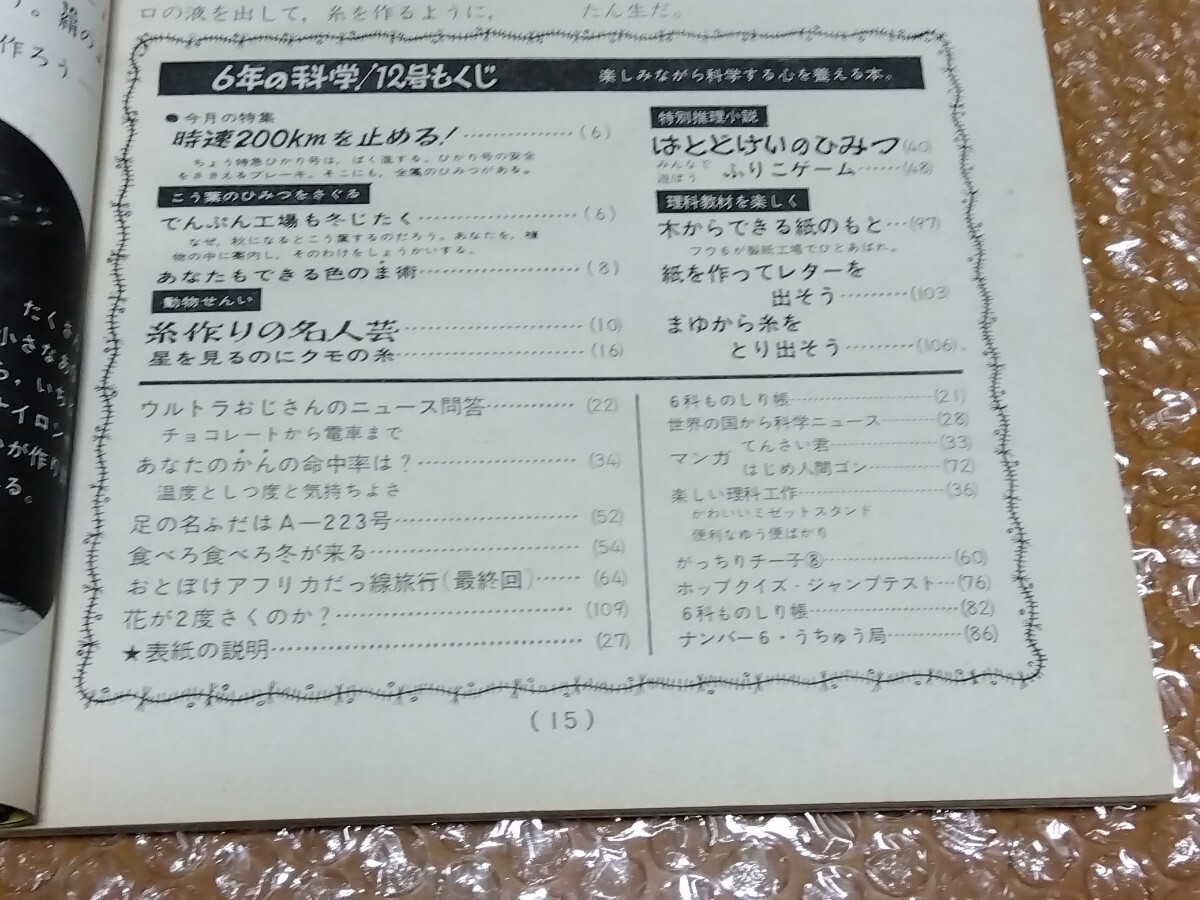 ロの液を出して，糸を作るように，
たん生だ。
。絹の
作ろう
6年の科学/12号もくじ
楽しみながら科学する心を養える本。
●今月の特集
時速200kmを止める!……………(6)
ちょう特急ひかり号は，ばく進する。ひかり号の安全
をささえるブレーキ。そこにも，金属のひみつがある。
こう葉のひみつをさぐる
でんぷん工場も冬じたく……………………(6)
なぜ，秋になるとこう葉するのだろう。あなたを，植
物の中に案内し，そのわけをしょうかいする。
あなたもできる色のま術……………………(8)
動物せんい
糸作りの名人芸……………………(10)
星を見るのにクモの糸……………………(16)
特別推理小説
はとどけいのひみつ(40)
みんなで
遊ぼう
ふりこゲーム……(48)
理科教材を楽しく
木からできる紙のもと…(97)
フウ6が製紙工場でひとあばれ。
紙を作ってレターを
出そう………(103)
まゆから糸を
とり出そう………(106)
ウルトラおじさんのニュース問答…………(22)
チョコレートから電車まで
あなたのかんの命中率は？……………………(34)
温度としつ度と気持ちよさ
足の名ふだはA—223号……………………(52)
食べろ食べろ冬が来る……………………(54)
おとぼけアフリカだっ線旅行(最終回)……(64)
花が2度さくのか？……………………(109)
★表紙の説明……………………………(27)
6科ものしり帳……………………(21)
世界の国から科学ニュース………(28)
マンガ
てんさい君……………(33)
はじめ人間ゴン…………(72)
楽しい理科工作……………………(36)
かわいいミゼットスタンド
便利なゆう便ばかり
がっちりチー子⑧………………(60)
ホップクイズ・ジャンプテスト…(76)
6科ものしり帳……………………(82)
ナンバー6・うちゅう局…………(86)
(15)
たくさん
小さなあ
ら，いち
ナイロン
が作り
る。